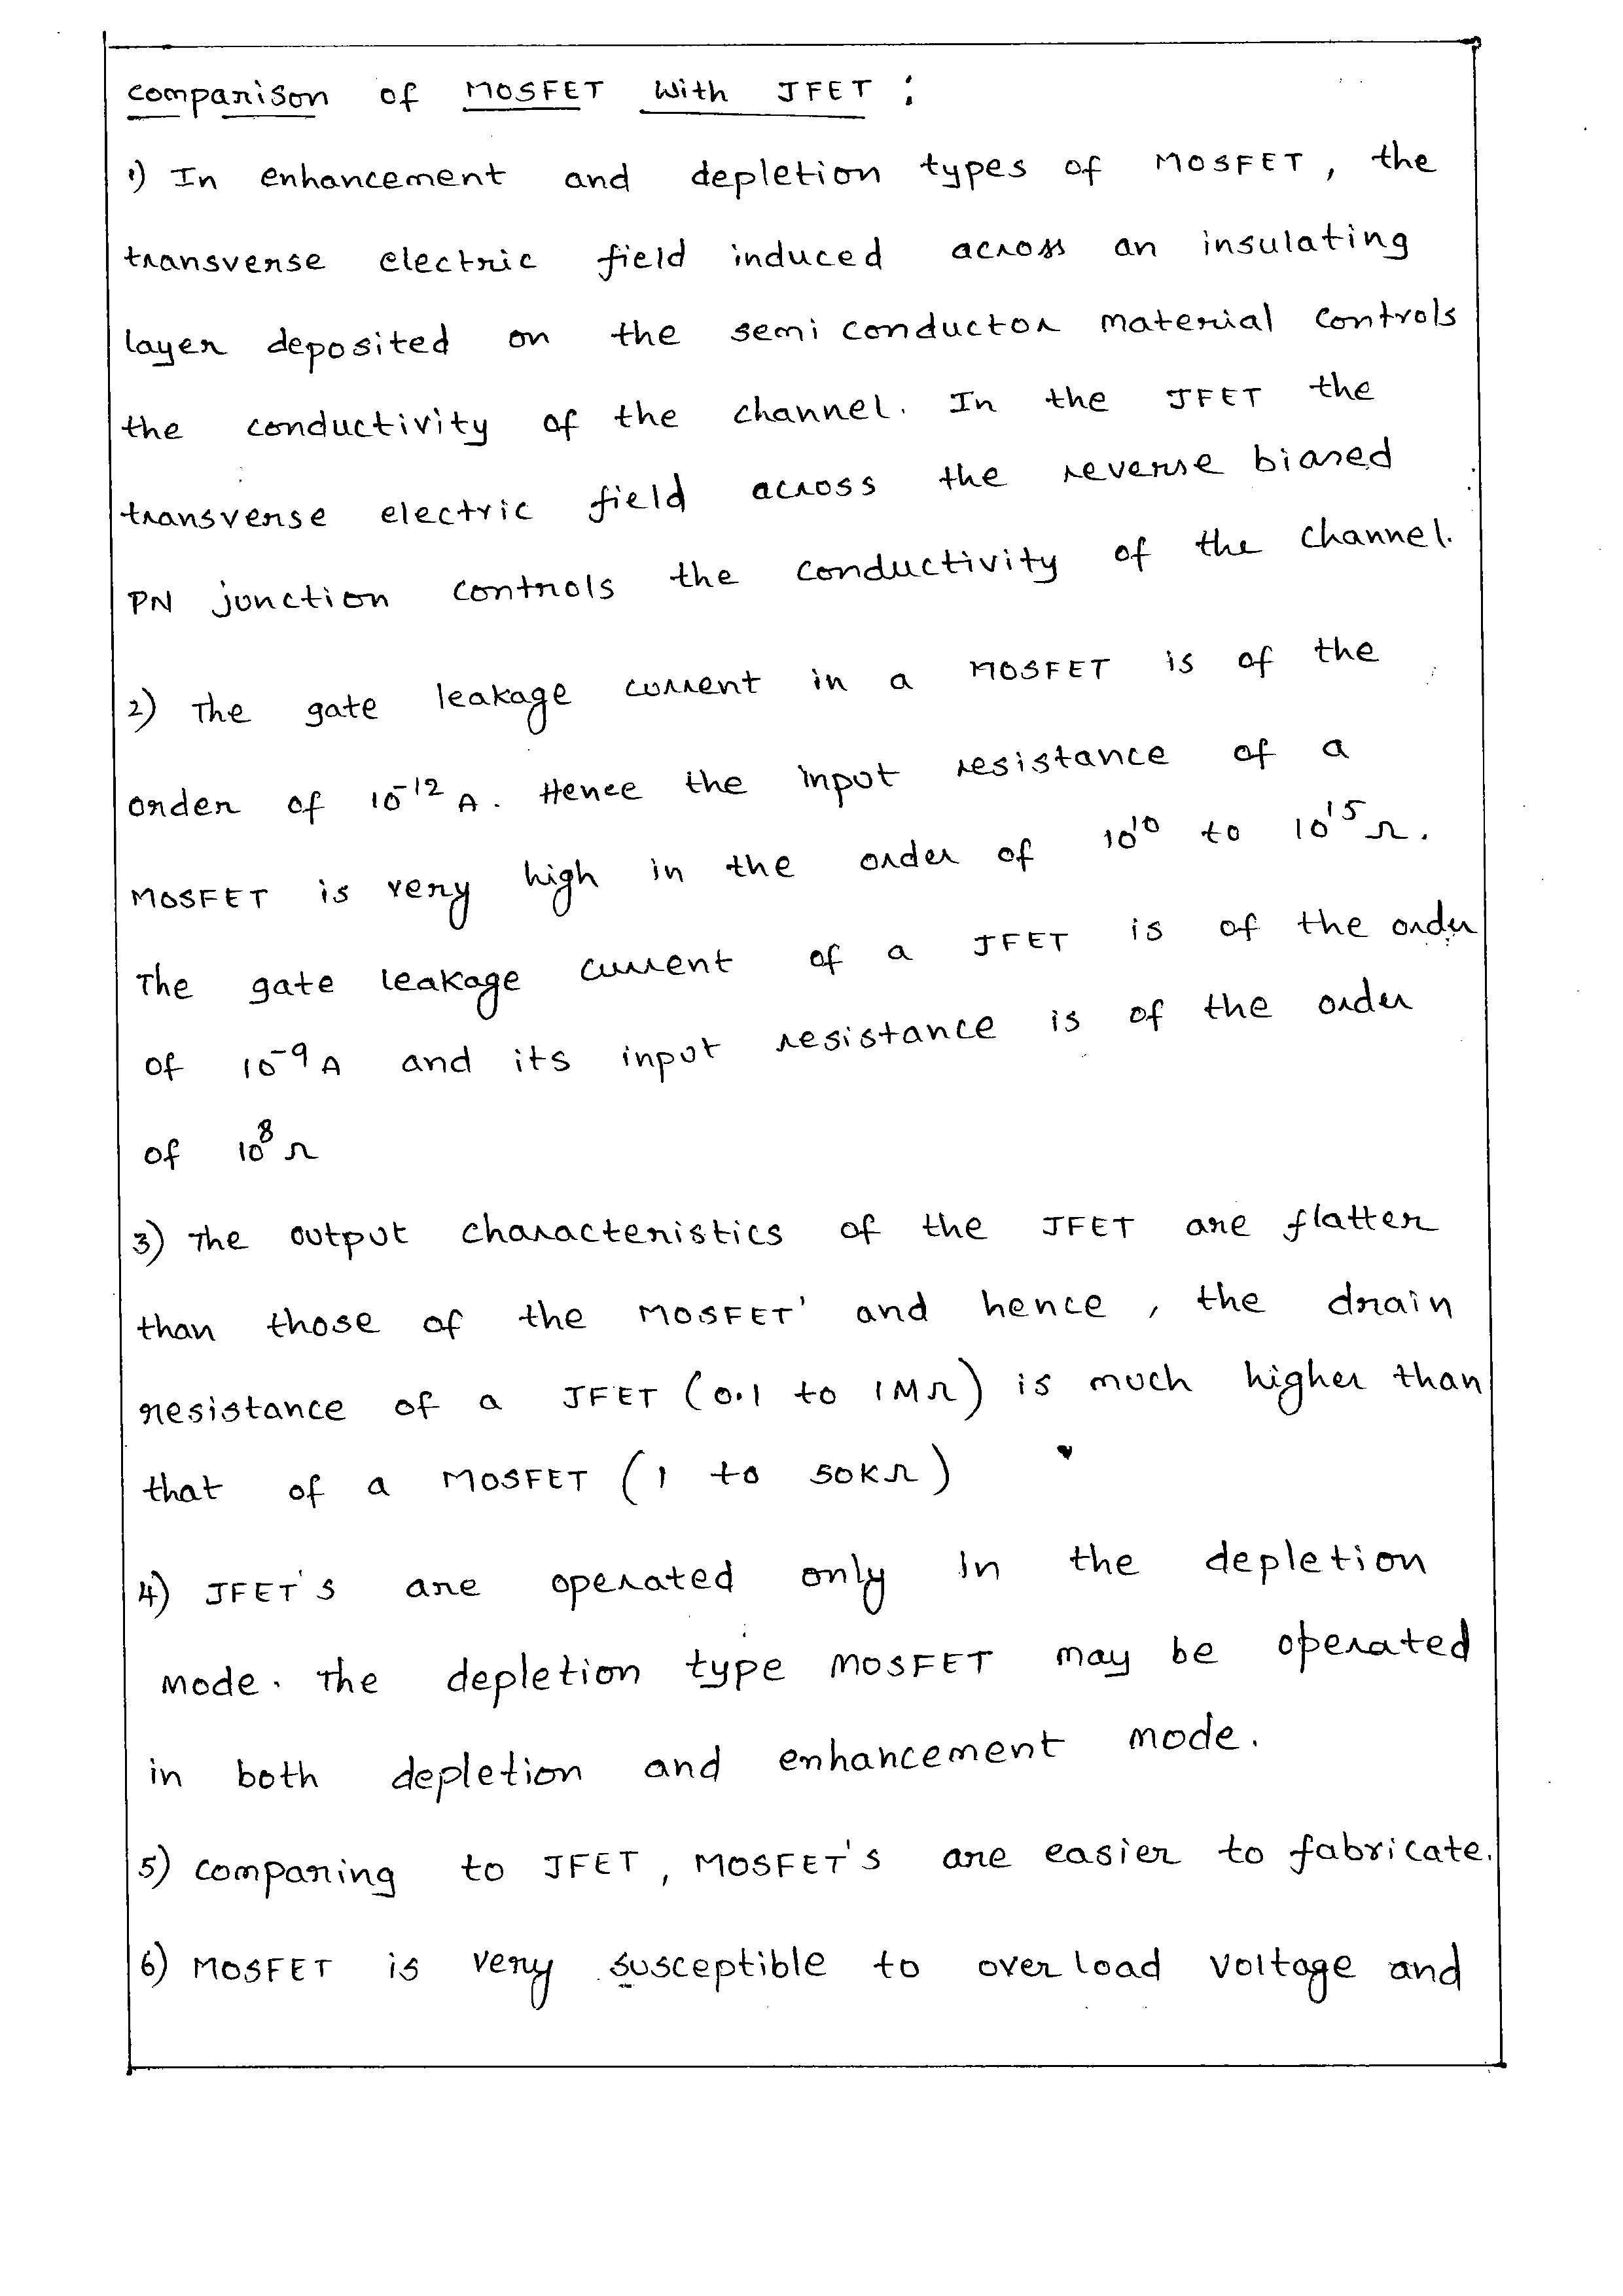 comparison of MOSFET with JFET :
1) In enhancement and depletion types of MOSFET, the
transverse electric field induced across an insulating
layer deposited on the semi conductor material controls
the conductivity of the channel. In the JFET the
transverse electric field across the reverse biased
PN junction controls the conductivity of the channel.
2) The gate leakage current in a MOSFET is of the
order of 10⁻¹² A. Hence the input resistance of a
MOSFET is very high in the order of 10¹⁰ to 10¹⁵ Ω.
The gate leakage current of a JFET is of the order
of 10⁻⁹ A and its input resistance is of the order
of 10⁸ Ω
3) The output characteristics of the JFET are flatter
than those of the MOSFET' and hence, the drain
resistance of a JFET (0.1 to 1MΩ) is much higher than
that of a MOSFET (1 to 50KΩ)
4) JFET's are operated only in the depletion
mode. The depletion type MOSFET may be operated
in both depletion and enhancement mode.
5) comparing to JFET, MOSFET's are easier to fabricate.
6) MOSFET is very susceptible to over load voltage and